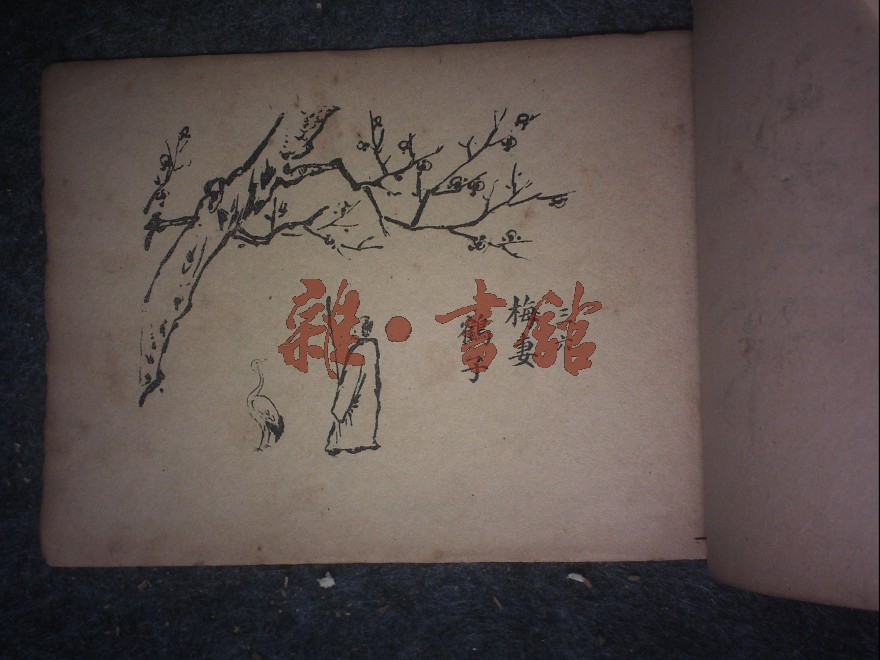 梅妻
鶴子
雜·書館